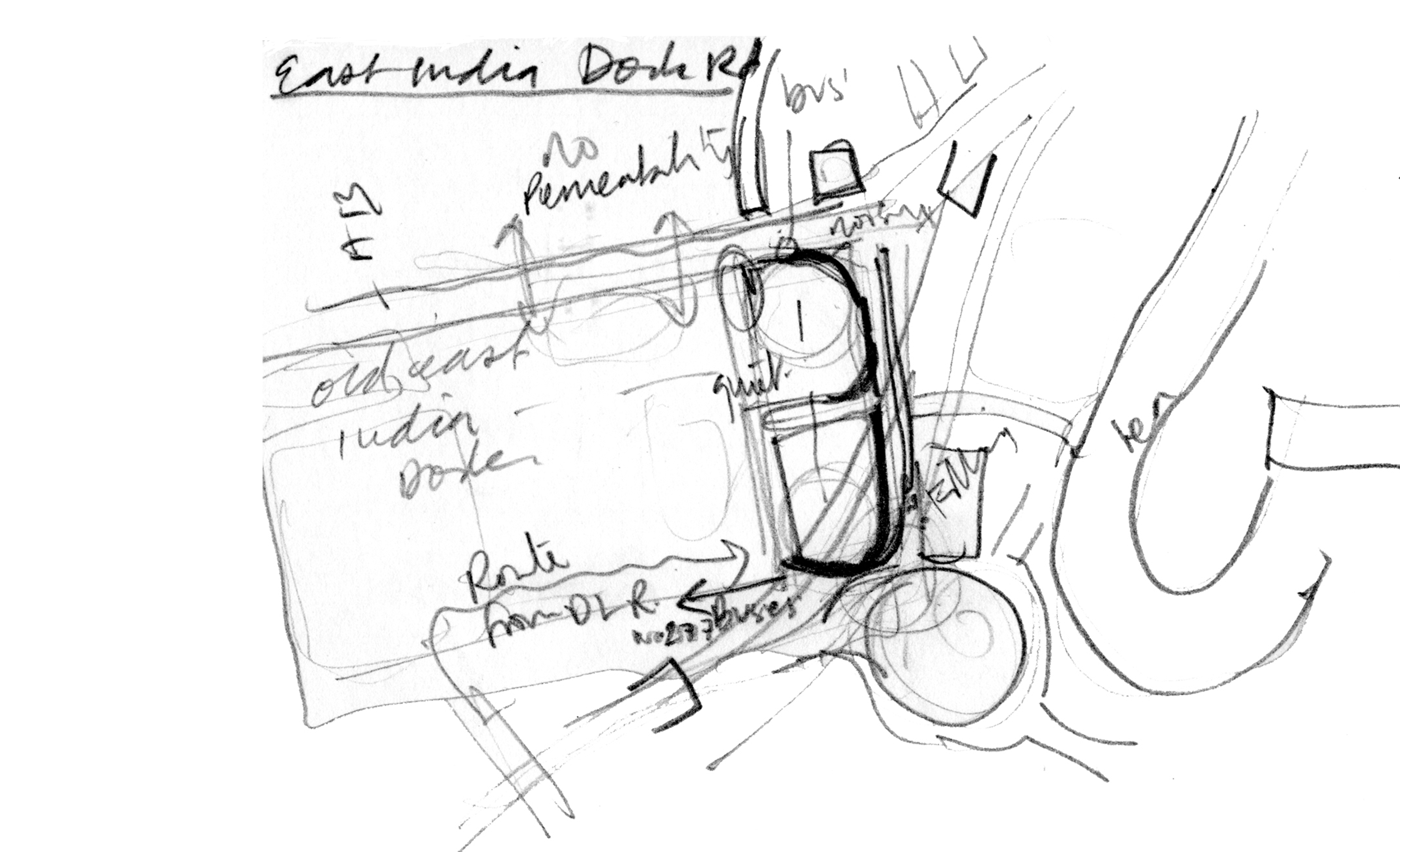 East India Dock Rd
bus
No
Permeability
A13
noisy
old east
India
Dock
quiet
Route
from DLR
No 277 Buses